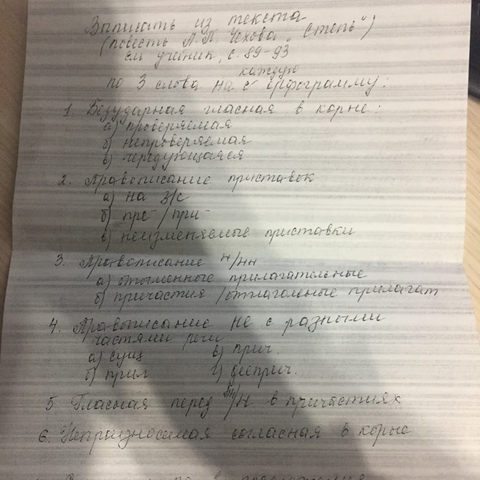 Выписать из текста
(повесть А.П. Чехова „Степь")
см учебник, с. 89-93
по 3 слова на каждую орфограмму:
1. Безударная гласная в корне:
а) проверяемая
б) непроверяемая
в) чередующаяся
2. Правописание приставок
а) на з/с
б) пре-/при-
в) неизменяемые приставки
3. Правописание н/нн
а) отыменные прилагательные
б) причастия /отглагольные прилагат
4. Правописание не с разными
частями речи
а) сущ в) прич.
б) прил г) дееприч.
5. Гласная перед нн/н в причастиях
6. Непроизносимая согласная в корне